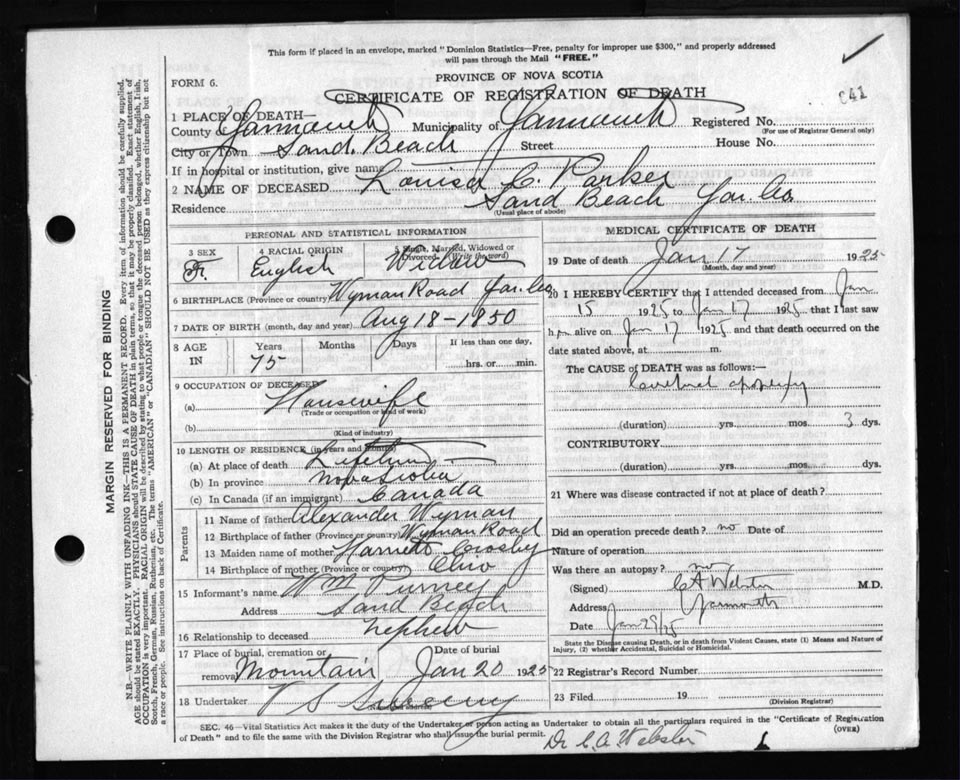 This form if placed in an envelope, marked "Dominion Statistics—Free, penalty for improper use $300," and properly addressed
will pass through the Mail "FREE."
PROVINCE OF NOVA SCOTIA
FORM 6.
CERTIFICATE OF REGISTRATION OF DEATH
641
1 PLACE OF DEATH—
County Yarmouth Municipality of Yarmouth Registered No.
(For use of Registrar General only)
City or Town Sand Beach Street House No.
If in hospital or institution, give name
2 NAME OF DECEASED Louisa C. Parker
Residence Sand Beach Yar. Co.
(Usual place of abode)
PERSONAL AND STATISTICAL INFORMATION
3 SEX 4 RACIAL ORIGIN 5 Single, Married, Widowed or Divorced (Write the word)
F. English Widow
6 BIRTHPLACE (Province or country) Wyman Road Yar. Co
7 DATE OF BIRTH (month, day and year) Aug 18-1850
8 AGE IN Years Months Days If less than one day,
75 hrs. or min.
9 OCCUPATION OF DECEASED
(a) Housewife
(Trade or occupation or kind of work)
(b)
(Kind of industry)
10 LENGTH OF RESIDENCE (in years and months)
(a) At place of death Lifetime
(b) In province Nova Scotia
(c) In Canada (if an immigrant) Canada
Parents
11 Name of father Alexander Wyman
12 Birthplace of father (Province or country) Wyman Road
13 Maiden name of mother Harriett Crosby
14 Birthplace of mother (Province or country) Ohio
15 Informant's name Wm Purney
Address Sand Beach
16 Relationship to deceased nephew
17 Place of burial, cremation or removal Mountain Date of burial Jan 20 1925
18 Undertaker V S Sweeny
MEDICAL CERTIFICATE OF DEATH
19 Date of death Jan 17 1925
(Month, day and year)
20 I HEREBY CERTIFY that I attended deceased from Jan
15 1925 to Jan 17 1925 that I last saw
h alive on Jan 17 1925 and that death occurred on
date stated above, at m.
The CAUSE of DEATH was as follows:—
Cerebral apoplexy
(duration) yrs. mos. 3 dys.
CONTRIBUTORY
(duration) yrs. mos. dys.
21 Where was disease contracted if not at place of death?
Did an operation precede death? no Date of
Nature of operation
Was there an autopsy? no
(Signed) C A Webster M.D.
Address Yarmouth
Date Jan 29/25
State the Disease causing Death, or in death from Violent Causes, state (1) Means and Nature of Injury, (2) whether Accidental, Suicidal or Homicidal.
22 Registrar's Record Number
23 Filed 19
(Division Registrar)
SEC. 46—Vital Statistics Act makes it the duty of the Undertaker or person acting as Undertaker to obtain all the particulars required in the "Certificate of Registration
of Death" and to file the same with the Division Registrar who shall issue the burial permit.
(OVER)
Dr C. A. Webster
MARGIN RESERVED FOR BINDING
N.B.—WRITE PLAINLY WITH UNFADING INK—THIS IS A PERMANENT RECORD. Every item of information should be carefully supplied.
AGE should be stated EXACTLY. PHYSICIANS should STATE CAUSE OF DEATH in plain terms, so that it may be properly classified. Exact statement of
OCCUPATION is very important. RACIAL ORIGIN will be described by stating to what people or tongue the deceased person belonged, whether English, Irish,
Scotch, French, German, Russian, Ruthenian, etc. The terms "AMERICAN" or "CANADIAN" SHOULD NOT BE USED as they express citizenship but not
a race or people. See instructions on back of Certificate.